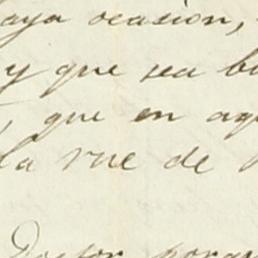 aya ocasion,
y que sea b
, que en aq
la rue de
Doctor porqu